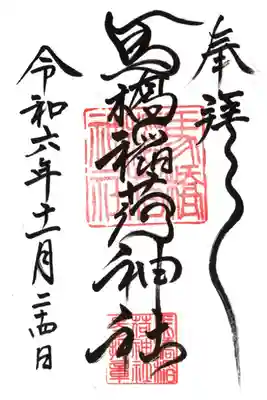 奉拝
馬橋稲荷神社
令和六年十一月二十四日